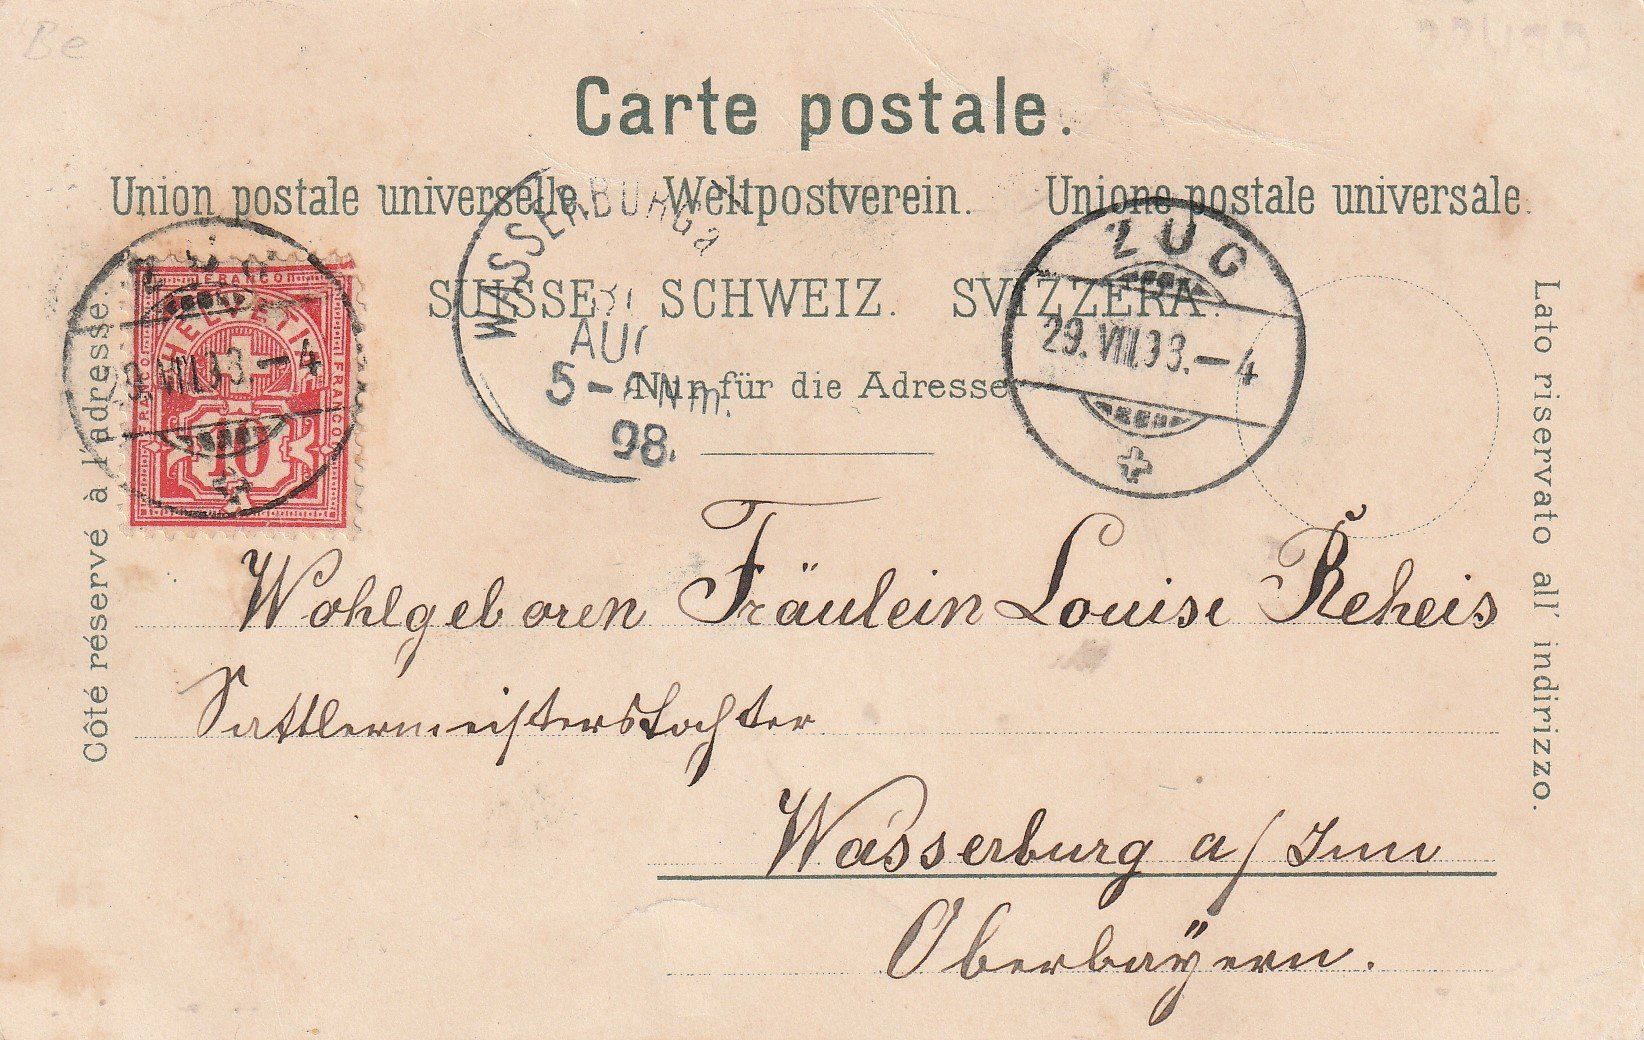 Be
Carte postale.
Union postale universelle. Weltpostverein. Unione postale universale.
SUISSE. SCHWEIZ. SVIZZERA.
Nur für die Adresse
Côté réservé à l'adresse.
Lato riservato all' indirizzo.
FRANCO
HELVETIA
FRANCO
FRANCO
10
ZUG
29.VIII.98.–4
WASSERBURG
AUG
5–6 Nm.
98.
ZUG
29.VIII.98.–4
Wohlgeboren Fräulein Louise Reheis
Sattlermeisterstochter
Wasserburg a/Inn
Oberbaÿern.